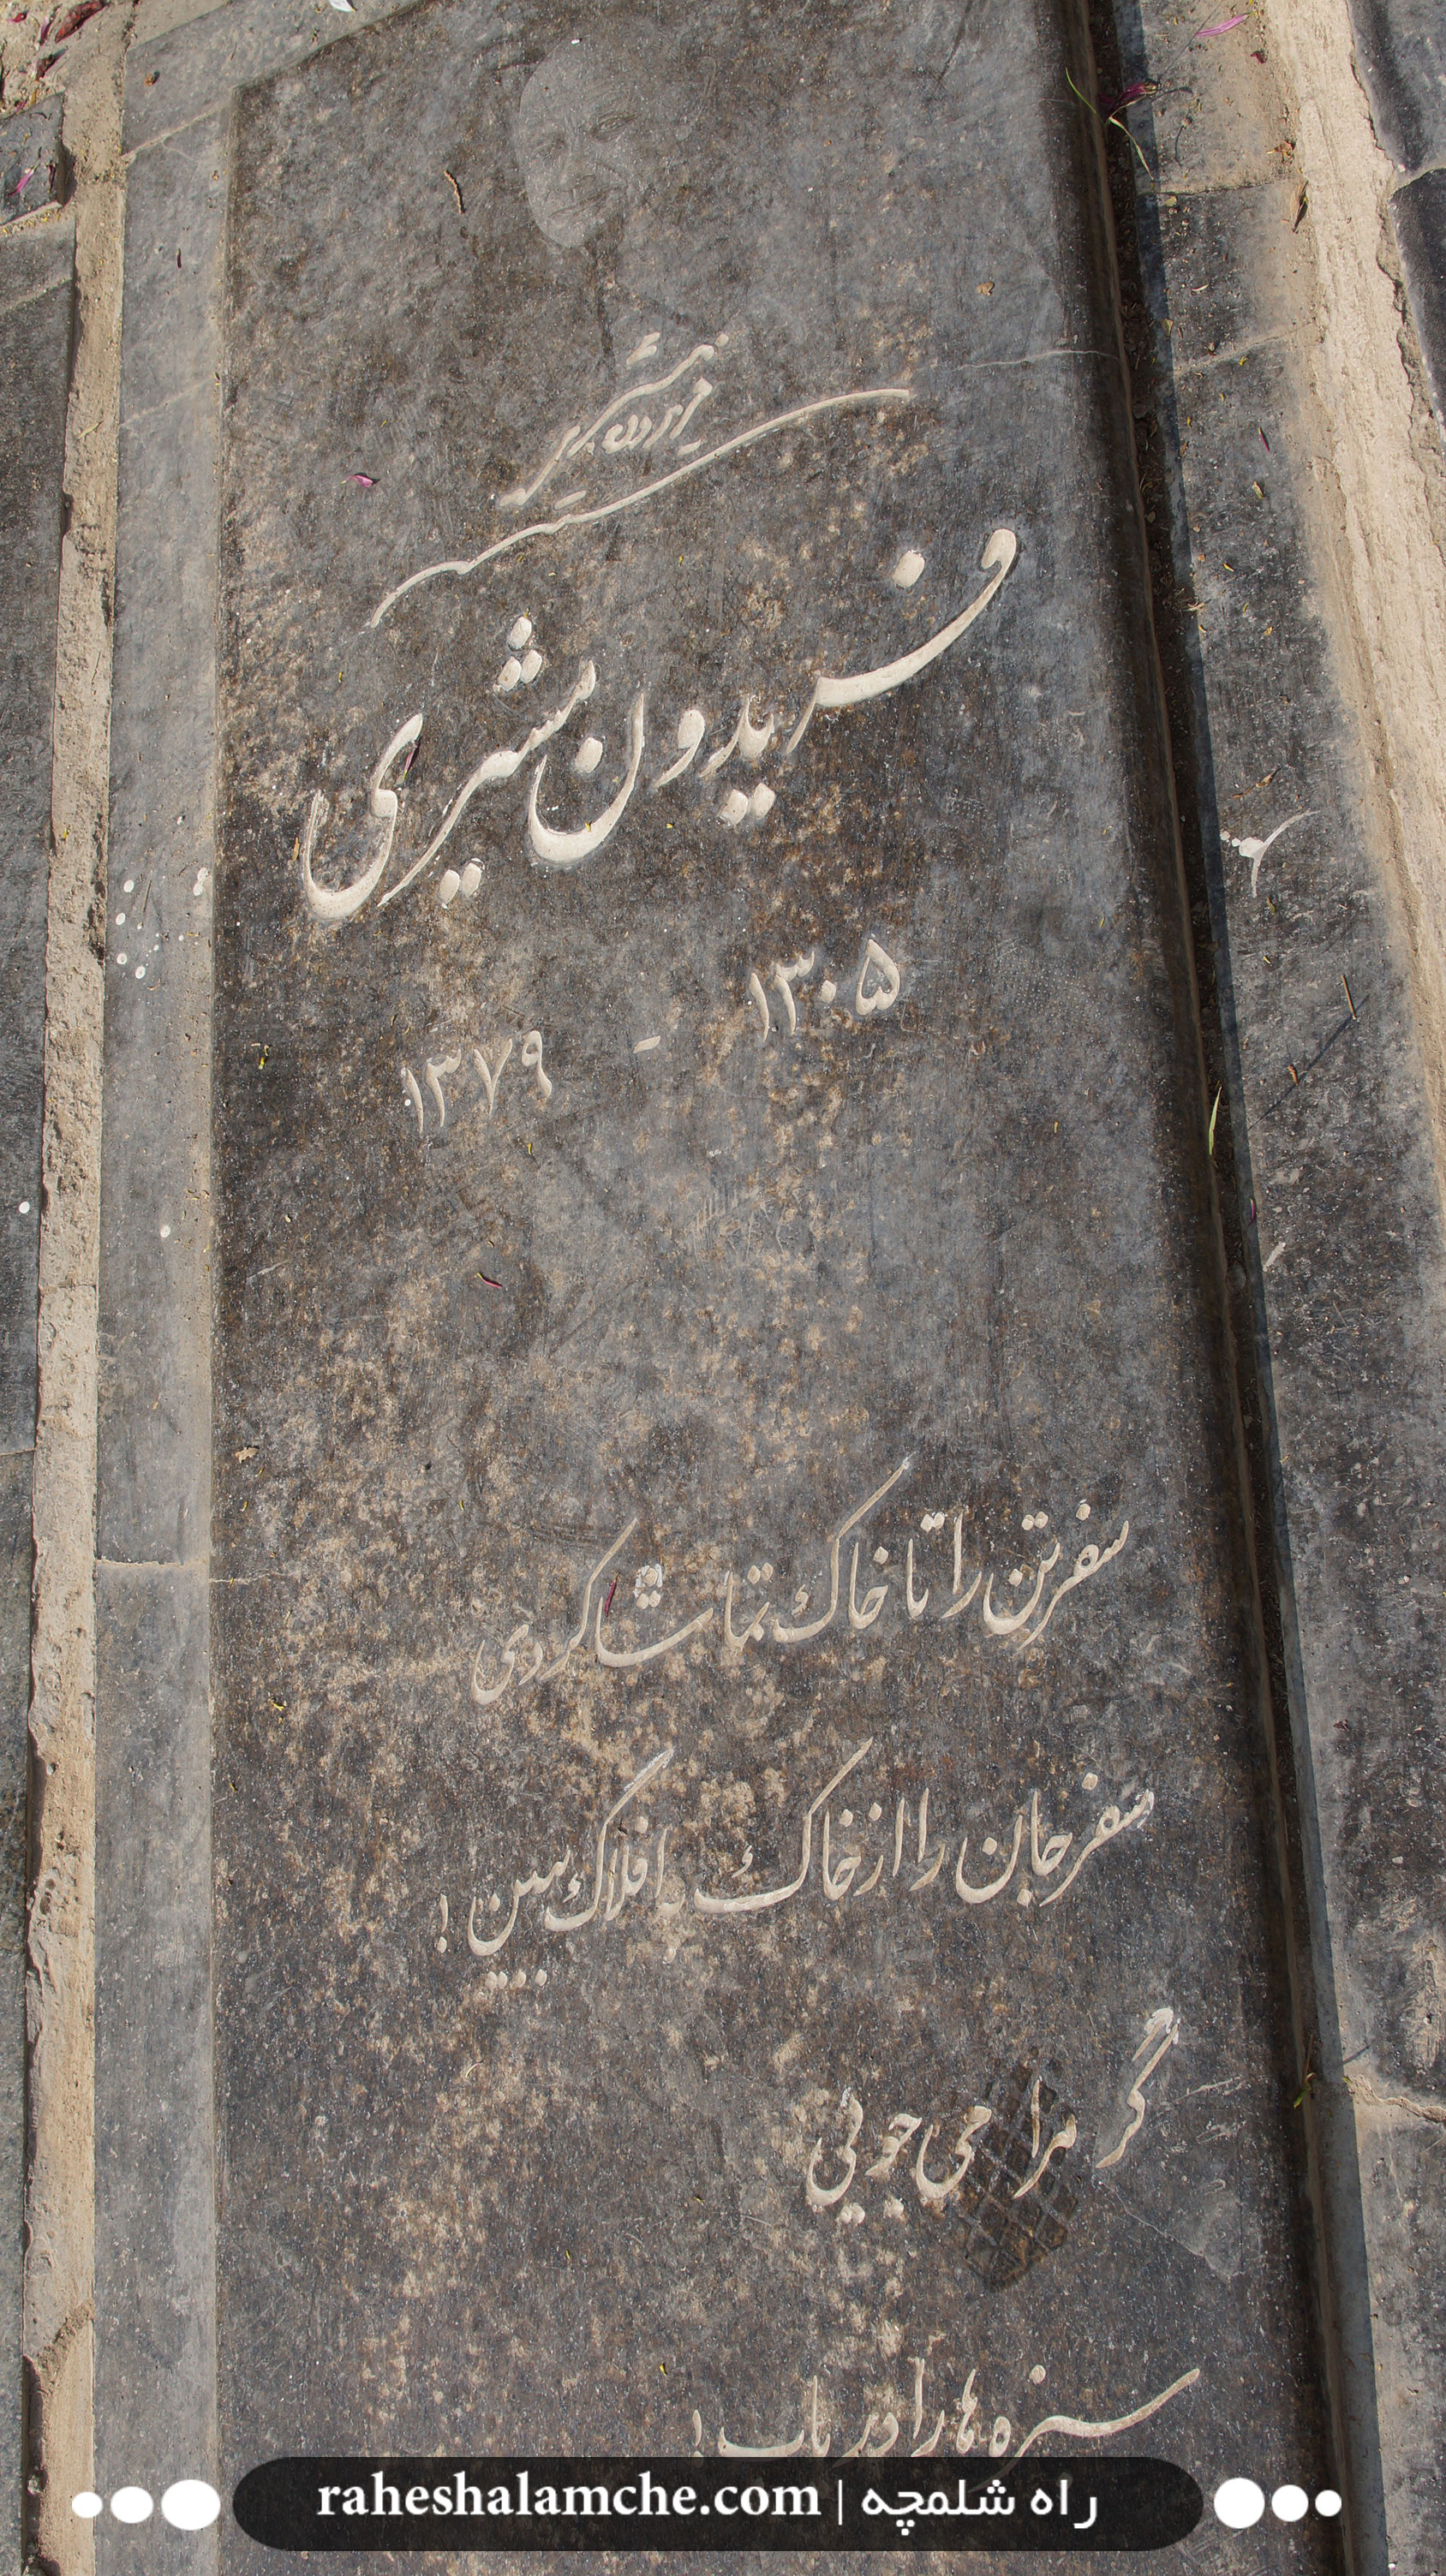 فریدون مشیری
۱۳۰۵ - ۱۳۷۹
سفر تن را تا خاک تماشا کردی
سفر جان را از خاک به افلاک ببین !
گر مرا می جویی
سبزه ها را دریاب !
راه شلمچه | raheshalamche.com